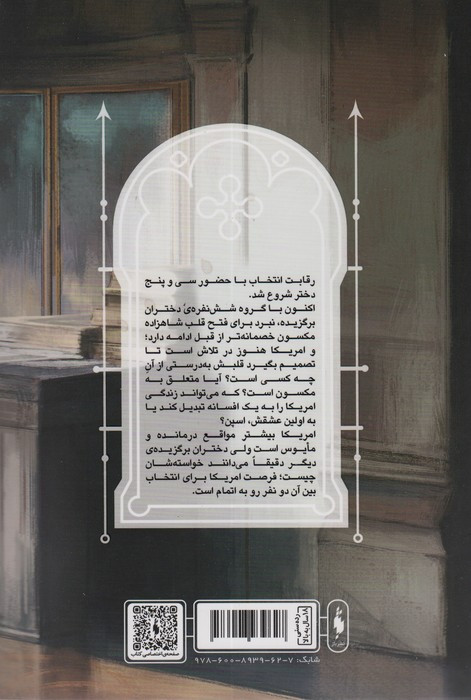 رقابت انتخاب با حضور سی و پنج
دختر شروع شد.
اکنون با گروه شش‌نفره‌یٔ دختران
برگزیده، نبرد برای فتح قلب شاهزاده
مکسون خصمانه‌تر از قبل ادامه دارد؛
و امریکا هنوز در تلاش است تا
تصمیم بگیرد قلبش به‌درستی از آنِ
چه کسی است؟ آیا متعلق به
مکسون است؟ که می‌تواند زندگی
امریکا را به یک افسانه تبدیل کند یا
به اولین عشقش، اسپن؟
امریکا بیشتر مواقع درمانده و
مأیوس است ولی دختران برگزیده‌ی
دیگر دقیقاً می‌دانند خواسته‌شان
چیست؛ فرصت امریکا برای انتخاب
بین آن دو نفر رو به اتمام است.
رده‌سنی
۱۸سال‌به‌بالا
صفحه‌ی اختصاصی کتاب
شابک: ۹۷۸-۶۰۰-۸۹۳۹-۶۲-۷